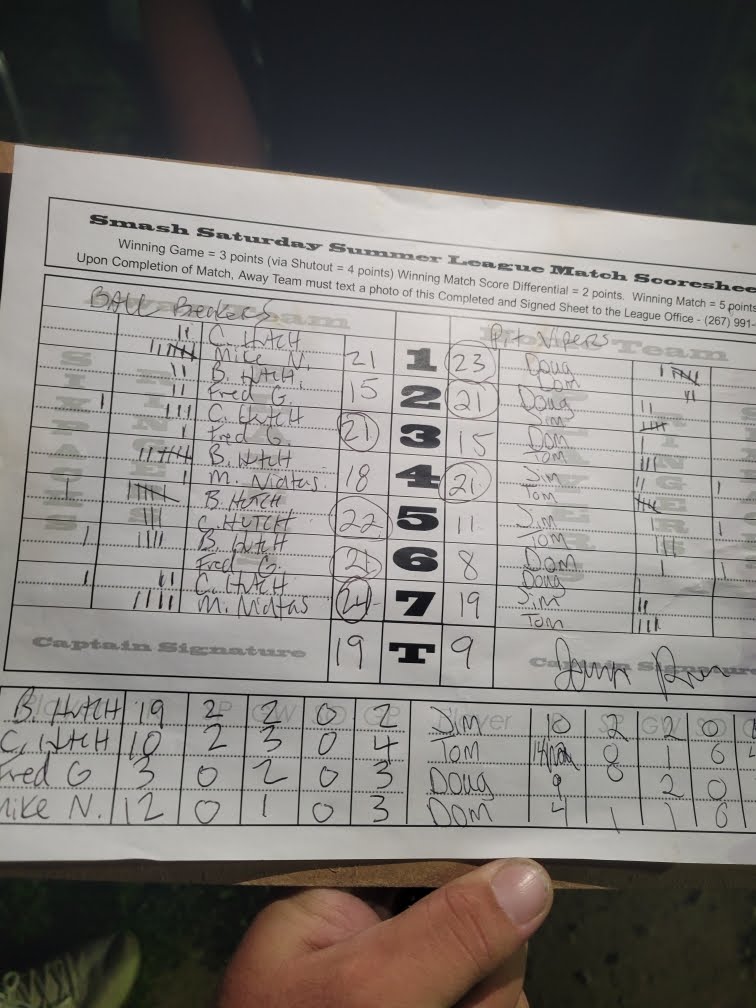 Smash Saturday Summer League Match Scoreshee
Winning Game = 3 points (via Shutout = 4 points) Winning Match Score Differential = 2 points. Winning Match = 5 points
Upon Completion of Match, Away Team must text a photo of this Completed and Signed Sheet to the League Office - (267) 991-
BALL Breakers Team Pit Vipers Team
C. HUTCH
Mike N. 21 1 23 Doug
Dom
B. HUTCH,
Fred G. 15 2 21 Doug
Jim
C. Hutch
Fred G. 21 3 15 Dom
Tom
B. HUTCH
M. Nidtas 18 4 21 Jim
Tom
B. HUTCH
C. HUTCH 22 5 11 Jim
Tom
B. Hutch
Fred G. 21 6 8 Dom
Doug
C. HUTCH
M. Nidtas 21 7 19 Jim
Tom
Captain Signature 19 T 9 Captain Signature
B. HUTCH 19 2 2 0 2 Jim 10 2 2 0
C. HUTCH 10 2 3 0 4 Tom 14 0 1 0 4
Fred G 3 0 2 0 3 Doug 9 0 2 0
Mike N. 12 0 1 0 3 Dom 4 1 1 0